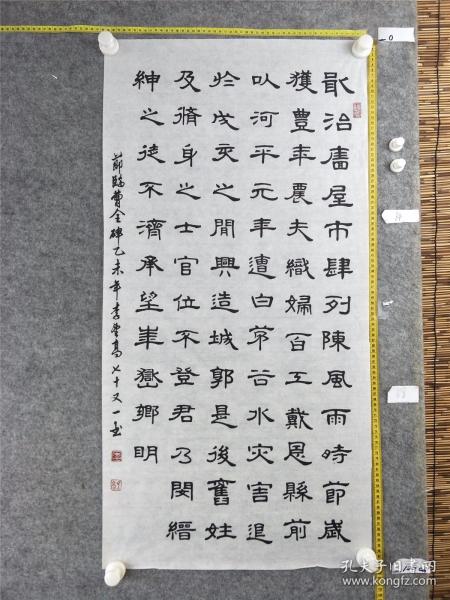 戢治廧屋市肆列陳風雨時節歲
獲豐年農夫織婦百工戴恩縣前
以河平元年遭白茅谷水灾害退
於戌亥之間興造城郭是後舊姓
及脩身之士官位不登君乃閔縉
紳之徒不濟承望華嶽鄉明
節臨曹全碑乙未年李高七十又一書
孔夫子旧书网
book.kongfz.com